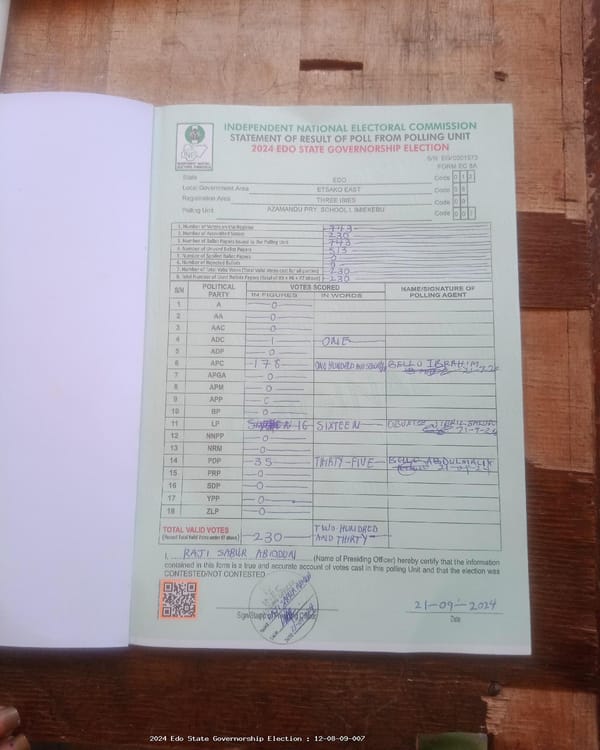 INDEPENDENT NATIONAL ELECTORAL COMMISSION
STATEMENT OF RESULT OF POLL FROM POLLING UNIT
2024 EDO STATE GOVERNORSHIP ELECTION
FORM EC 8A
State EDO Code 0 1 2
Local Government Area ETSAKO EAST Code 0 8
Registration Area THREE IBIES Code 0 9
Polling Unit AZAMANDU PRY. SCHOOL I, IMIEKEBU Code 0 0 7
1. Number of Voters on the Register 743
2. Number of Accredited Voters 230
3. Number of Ballot Papers Issued to the Polling Unit 743
4. Number of Unused Ballot Papers 513
5. Number of Spoiled Ballot Papers
6. Number of Rejected Ballots
7. Number of Total Valid Votes (Total Valid Votes cast for all parties) 230
8. Total Number of Used Ballot Papers (Total of #5 + #6 + #7 above) 230
S/N POLITICAL PARTY VOTES SCORED NAME/SIGNATURE OF POLLING AGENT
IN FIGURES IN WORDS
1 A 0
2 AA 0
3 AAC 0
4 ADC 1 ONE
5 ADP 0
6 APC 178 ONE HUNDRED AND BELLO IBRAHIM
7 APGA 0
8 APM 0
9 APP 0
10 BP 0
11 LP 16 SIXTEEN
12 NNPP 0
13 NRM 0
14 PDP 35 THIRTY-FIVE BELLO ABDULMALIK
15 PRP 0
16 SDP 0
17 YPP 0
18 ZLP 0
TOTAL VALID VOTES 230 TWO HUNDRED AND THIRTY
I, RAJI SABUR ABIODUN (Name of Presiding Officer) hereby certify that the information
contained in this form is a true and accurate account of votes cast in this polling Unit and that the election was
CONTESTED/NOT CONTESTED
21-09-2024
Date
2024 Edo State Governorship Election : 12-08-09-007